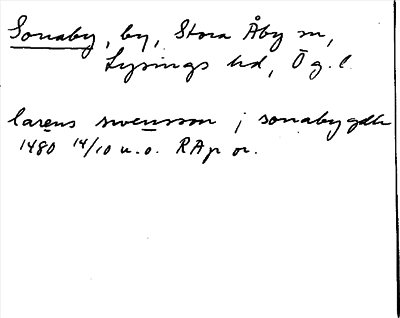 Sonaby, by, Stora Åby sn,
Lysings hd, Ög. l.
larens swensson j sonaby gdh
1480 14/10 u.o. RAp or.